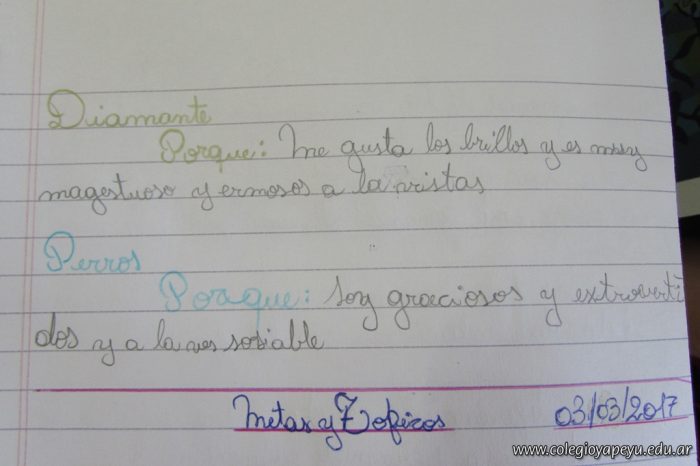 Diamante
Porque: Me gusta los brillos y es muy
magestuoso y ermosos a la vistas
Perros
Porque: soy graciosos y extroverti
dos y a la ves sosiable
Metas y Trofeos 03/03/2017
www.colegioyapeyu.edu.ar